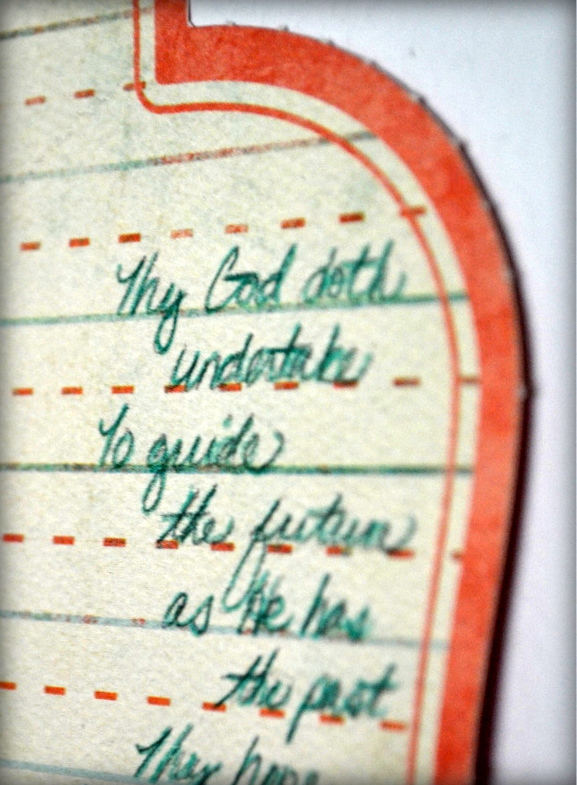 Thy God doth
undertake
To guide
the future
as He has
the past
Thy hope